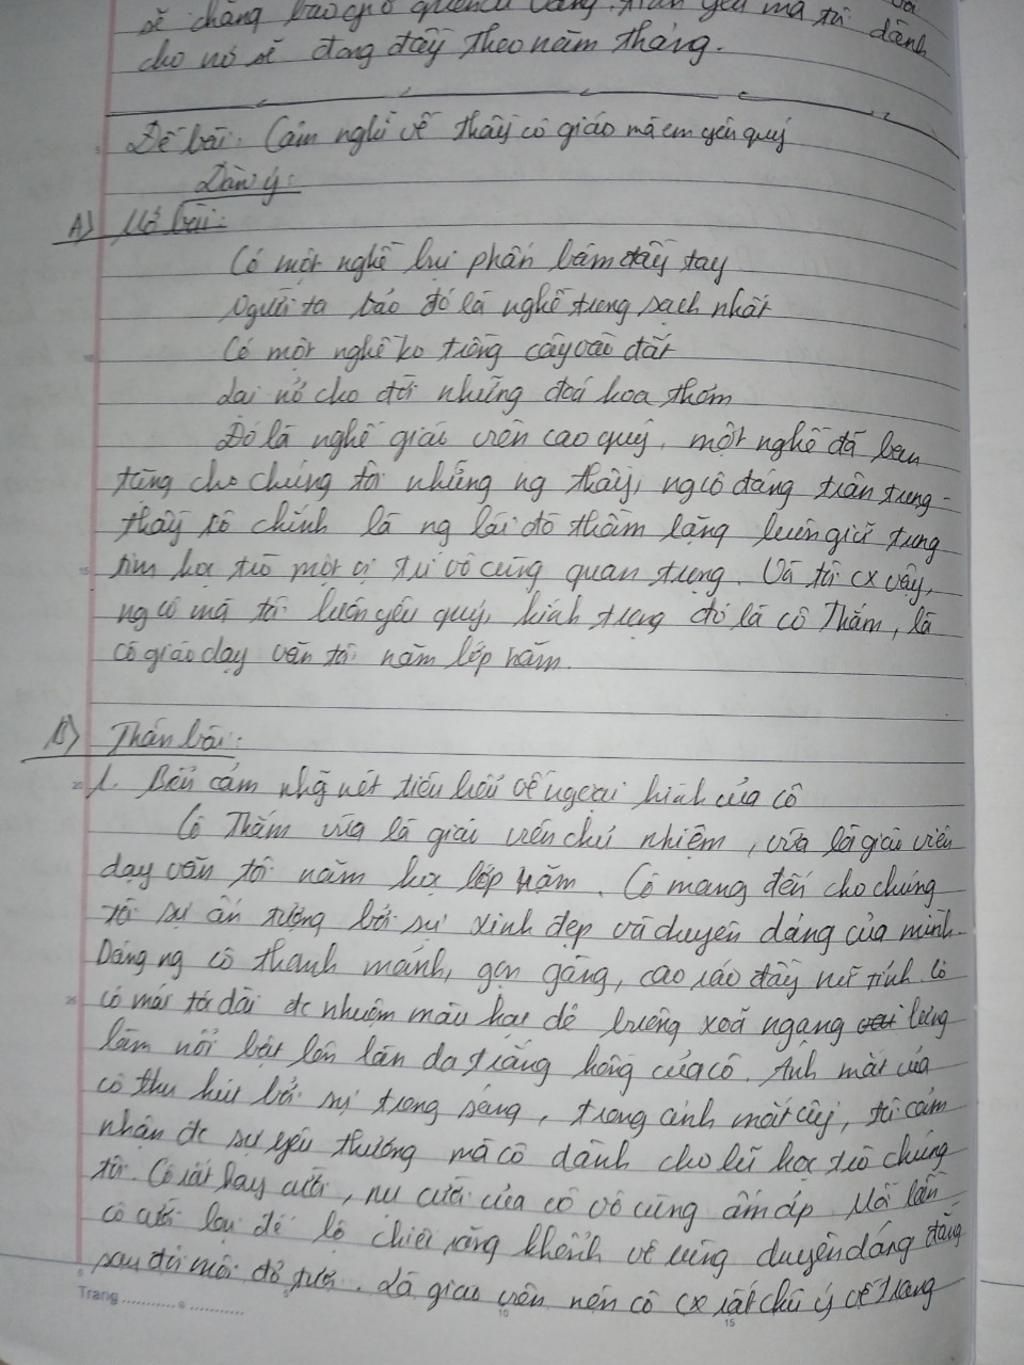 sẽ chẳng bao giờ quên cô Vàng. Tình yêu mà tôi dành
cho nó sẽ đong đầy theo năm tháng.
Đề bài: Cảm nghĩ về thầy cô giáo mà em yêu quý
Dàn ý:
A) Mở bài:
Có một nghề bụi phấn bám đầy tay
Người ta bảo đó là nghề trong sạch nhất
Có một nghề ko trồng cây vào đất
Lại nở cho đời những đoá hoa thơm
Đó là nghề giáo viên cao quý, một nghề đã ban
tặng cho chúng tôi những ng thầy, ng cô đáng trân trọng.
Thầy cô chính là ng lái đò thầm lặng luôn giữ trong
tim học trò một vị trí vô cùng quan trọng. Và tôi cx vậy,
ng cô mà tôi luôn yêu quý, kính trọng đó là cô Thắm, là
cô giáo dạy văn tôi năm lớp năm.
B) Thân bài:
1. Biểu cảm nhg nét tiêu biểu về ngoại hình của cô
Cô Thắm vừa là giáo viên chủ nhiệm, vừa là giáo viên
dạy văn tôi năm học lớp năm. Cô mang đến cho chúng
tôi sự ấn tượng bởi sự xinh đẹp và duyên dáng của mình.
Dáng ng cô thanh mảnh, gọn gàng, cao ráo đầy nữ tính. Cô
có mái tóc dài đc nhuộm màu hạt dẻ buông xoã ngang lưng
làm nổi bật lên làn da trắng hồng của cô. Ánh mắt của
cô thu hút bởi sự trong sáng, trong ánh mắt ấy, tôi cảm
nhận đc sự yêu thương mà cô dành cho lũ học trò chúng
tôi. Cô rất hay cười, nụ cười của cô vô cùng ấm áp. Mỗi lần
cô cười lại để lộ chiếc răng khểnh vô cùng duyên dáng đằng
sau đôi môi đỏ tươi. Là giáo viên nên cô cx rất chú ý về trang
Trang